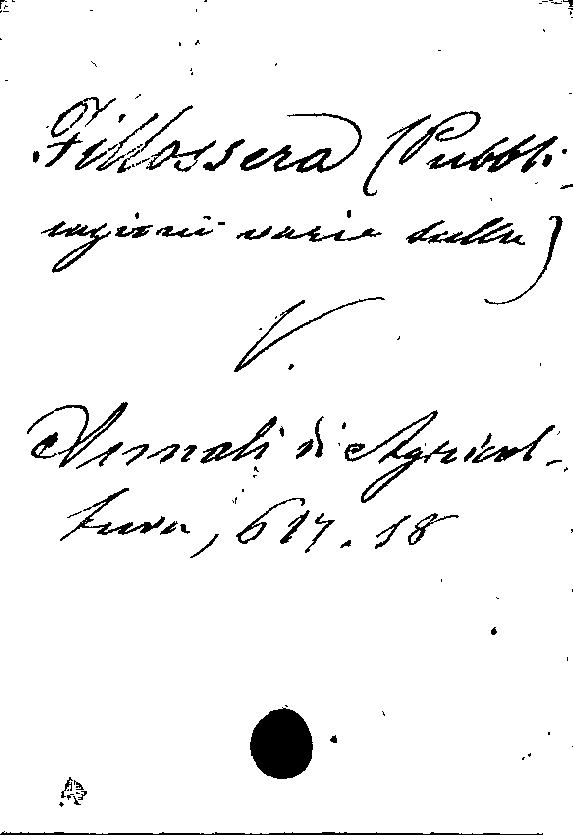 Fillossera (Pubbli-
cazioni varie sulla)
V.
Annali di Agricol-
tura, 617.18